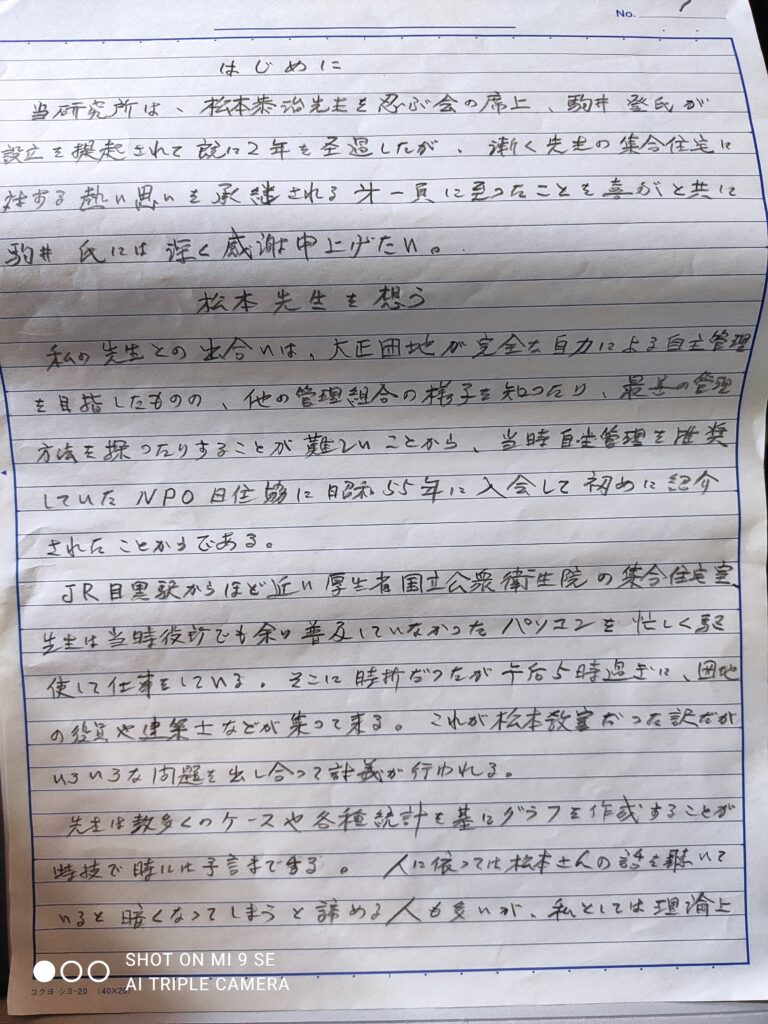 No. 1
はじめに
当研究所は、松本恭治先生を忍ぶ会の席上、駒井 登氏が
設立を提起されて既に2年を歪過したが、漸く先生の集合住宅に
対する熱い思いを承継される才一員に至ったことを喜がと共に
駒井 氏には深く感謝申上げたい。
松本先生を想う
私の先生との出合いは、大正団地が完全な自力による自主管理
を目指したものの、他の管理組合の様子を知ったり、最善の管理
方法を探ったりすることが難しいことから、当時自主管理を推奨
していた NPO日住協に昭和55年に入会して初めに紹介
されたことからである。
JR目黒駅からほど近い厚生省国立公衆衛生院の集合住宅室
先生は当時役所でも余り普及していなかったパソコンを忙しく駆
使して仕事をしている。そこに時折だったが午后5時過ぎに、団地
の役員や建築士などが集って来る。これが松本教室だった訳だが
いろいろな問題を出し合って討義が行われる。
先生は数多くのケースや各種統計を基にグラフを作成することが
時技で時には予言までする。人に依っては松本さんの話を聴いて
いると暗くなってしまうと諦める人も多いが、私としては理論上
コクヨ シヨ-20 (40×20)
SHOT ON MI 9 SE
AI TRIPLE CAMERA